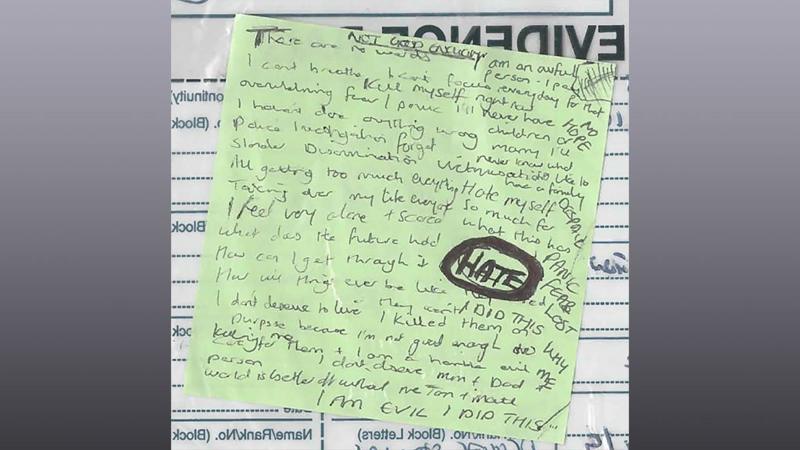 EVIDENCE
NOT GOOD ENOUGH
There are no words
I am an awful person - I pay every day for that
I can't breathe I can't focus
Kill myself right now
overwhelming fear / panic I'll never have
NO HOPE
I haven't done anything wrong
children or marry I'll
Police investigation forget
never know what
Slander Discrimination
like to have a family
All getting too much everything Hate myself
DESPAIR
Taking over my life everyone So much for what this has
I feel very alone + scared
PANIC
What does the future hold
HATE
FEAR
How can I get through it
LOST
How will things ever be like
I DID THIS
I don't deserve to live
I killed them on
WHY ME
purpose because I'm not good enough to
care for them + I am a horrible evil
person
I don't deserve mum + Dad
world is better off without me
I AM EVIL I DID THIS
Continuity)
No. (Block
No. (Block
No. (Block
Name/Rank/No. (Block
k Letters)
Name/Rank/No. (Block